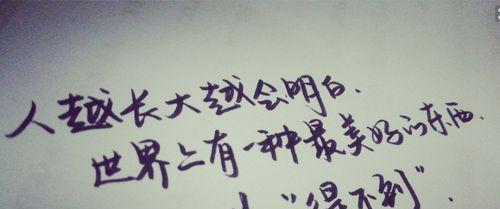 人越长大越会明白.
世界上有一种最美好的东西.
"得不到".